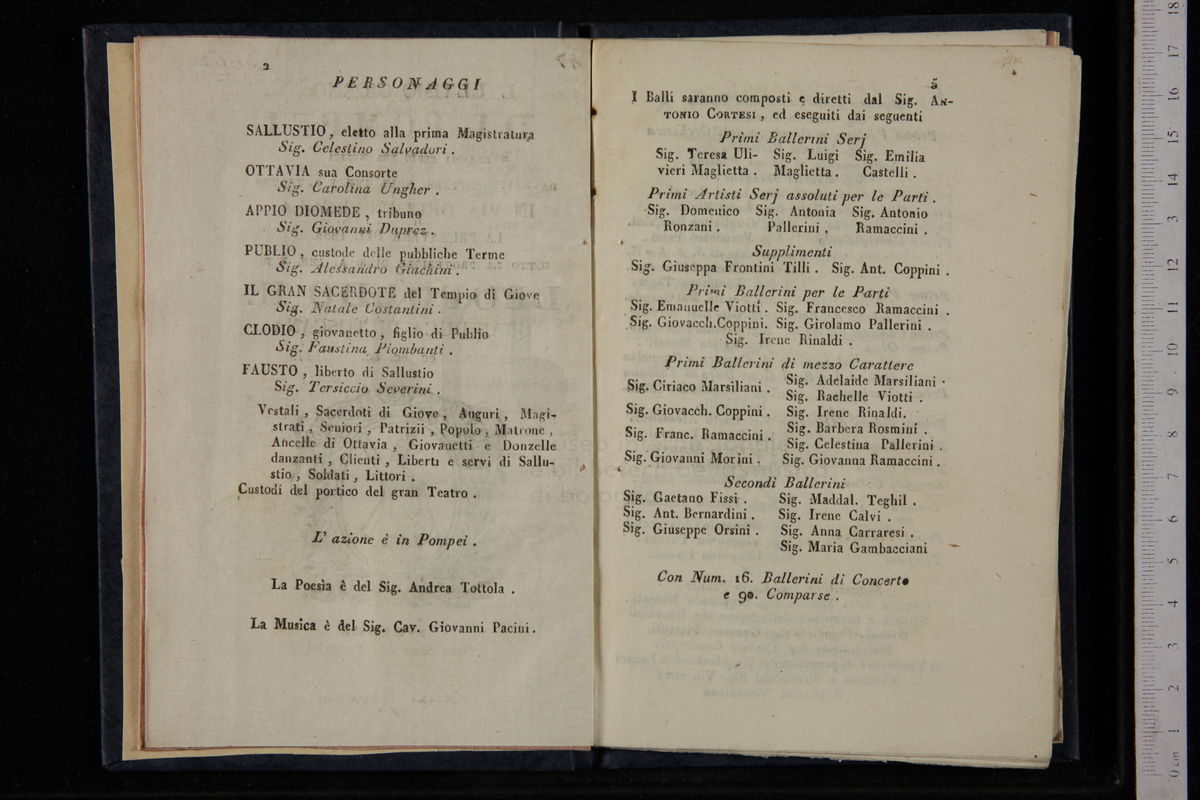 2
PERSONAGGI
SALLUSTIO, eletto alla prima Magistratura
Sig. Celestino Salvadori.
OTTAVIA sua Consorte
Sig. Carolina Ungher.
APPIO DIOMEDE, tribuno
Sig. Giovanni Duprez.
PUBLIO, custode delle pubbliche Terme
Sig. Alessandro Giachini.
IL GRAN SACERDOTE del Tempio di Giove
Sig. Natale Costantini.
CLODIO, giovanetto, figlio di Publio
Sig. Faustina Piombanti.
FAUSTO, liberto di Sallustio
Sig. Tersiccio Severini.
Vestali, Sacerdoti di Giove, Auguri, Magi-
strati, Seniori, Patrizii, Popolo, Matrone,
Ancelle di Ottavia, Giovanetti e Donzelle
danzanti, Clienti, Liberti e servi di Sallu-
stio, Soldati, Littori.
Custodi del portico del gran Teatro.
L' azione è in Pompei.
La Poesia è del Sig. Andrea Tottola.
La Musica è del Sig. Cav. Giovanni Pacini.
3
I Balli saranno composti e diretti dal Sig. AN-
TONIO CORTESI, ed eseguiti dai seguenti
Primi Ballerini Serj
Sig. Teresa Uli- Sig. Luigi Sig. Emilia
vieri Maglietta. Maglietta. Castelli.
Primi Artisti Serj assoluti per le Parti.
Sig. Domenico Sig. Antonia Sig. Antonio
Ronzani. Pallerini. Ramaccini.
Supplimenti
Sig. Giuseppa Frontini Tilli. Sig. Ant. Coppini.
Primi Ballerini per le Parti
Sig. Emanuelle Viotti. Sig. Francesco Ramaccini.
Sig. Giovacch. Coppini. Sig. Girolamo Pallerini.
Sig. Irene Rinaldi.
Primi Ballerini di mezzo Carattere
Sig. Ciriaco Marsiliani. Sig. Adelaide Marsiliani.
Sig. Rachelle Viotti.
Sig. Giovacch. Coppini. Sig. Irene Rinaldi.
Sig. Franc. Ramaccini. Sig. Barbera Rosmini.
Sig. Celestina Pallerini.
Sig. Giovanni Morini. Sig. Giovanna Ramaccini.
Secondi Ballerini
Sig. Gaetano Fissi. Sig. Maddal. Teghil.
Sig. Ant. Bernardini. Sig. Irene Calvi.
Sig. Giuseppe Orsini. Sig. Anna Carraresi.
Sig. Maria Gambacciani
Con Num. 16. Ballerini di Concerto
e 90. Comparse.
0 cm 1 2 3 4 5 6 7 8 9 10 11 12 13 14 15 16 17 18